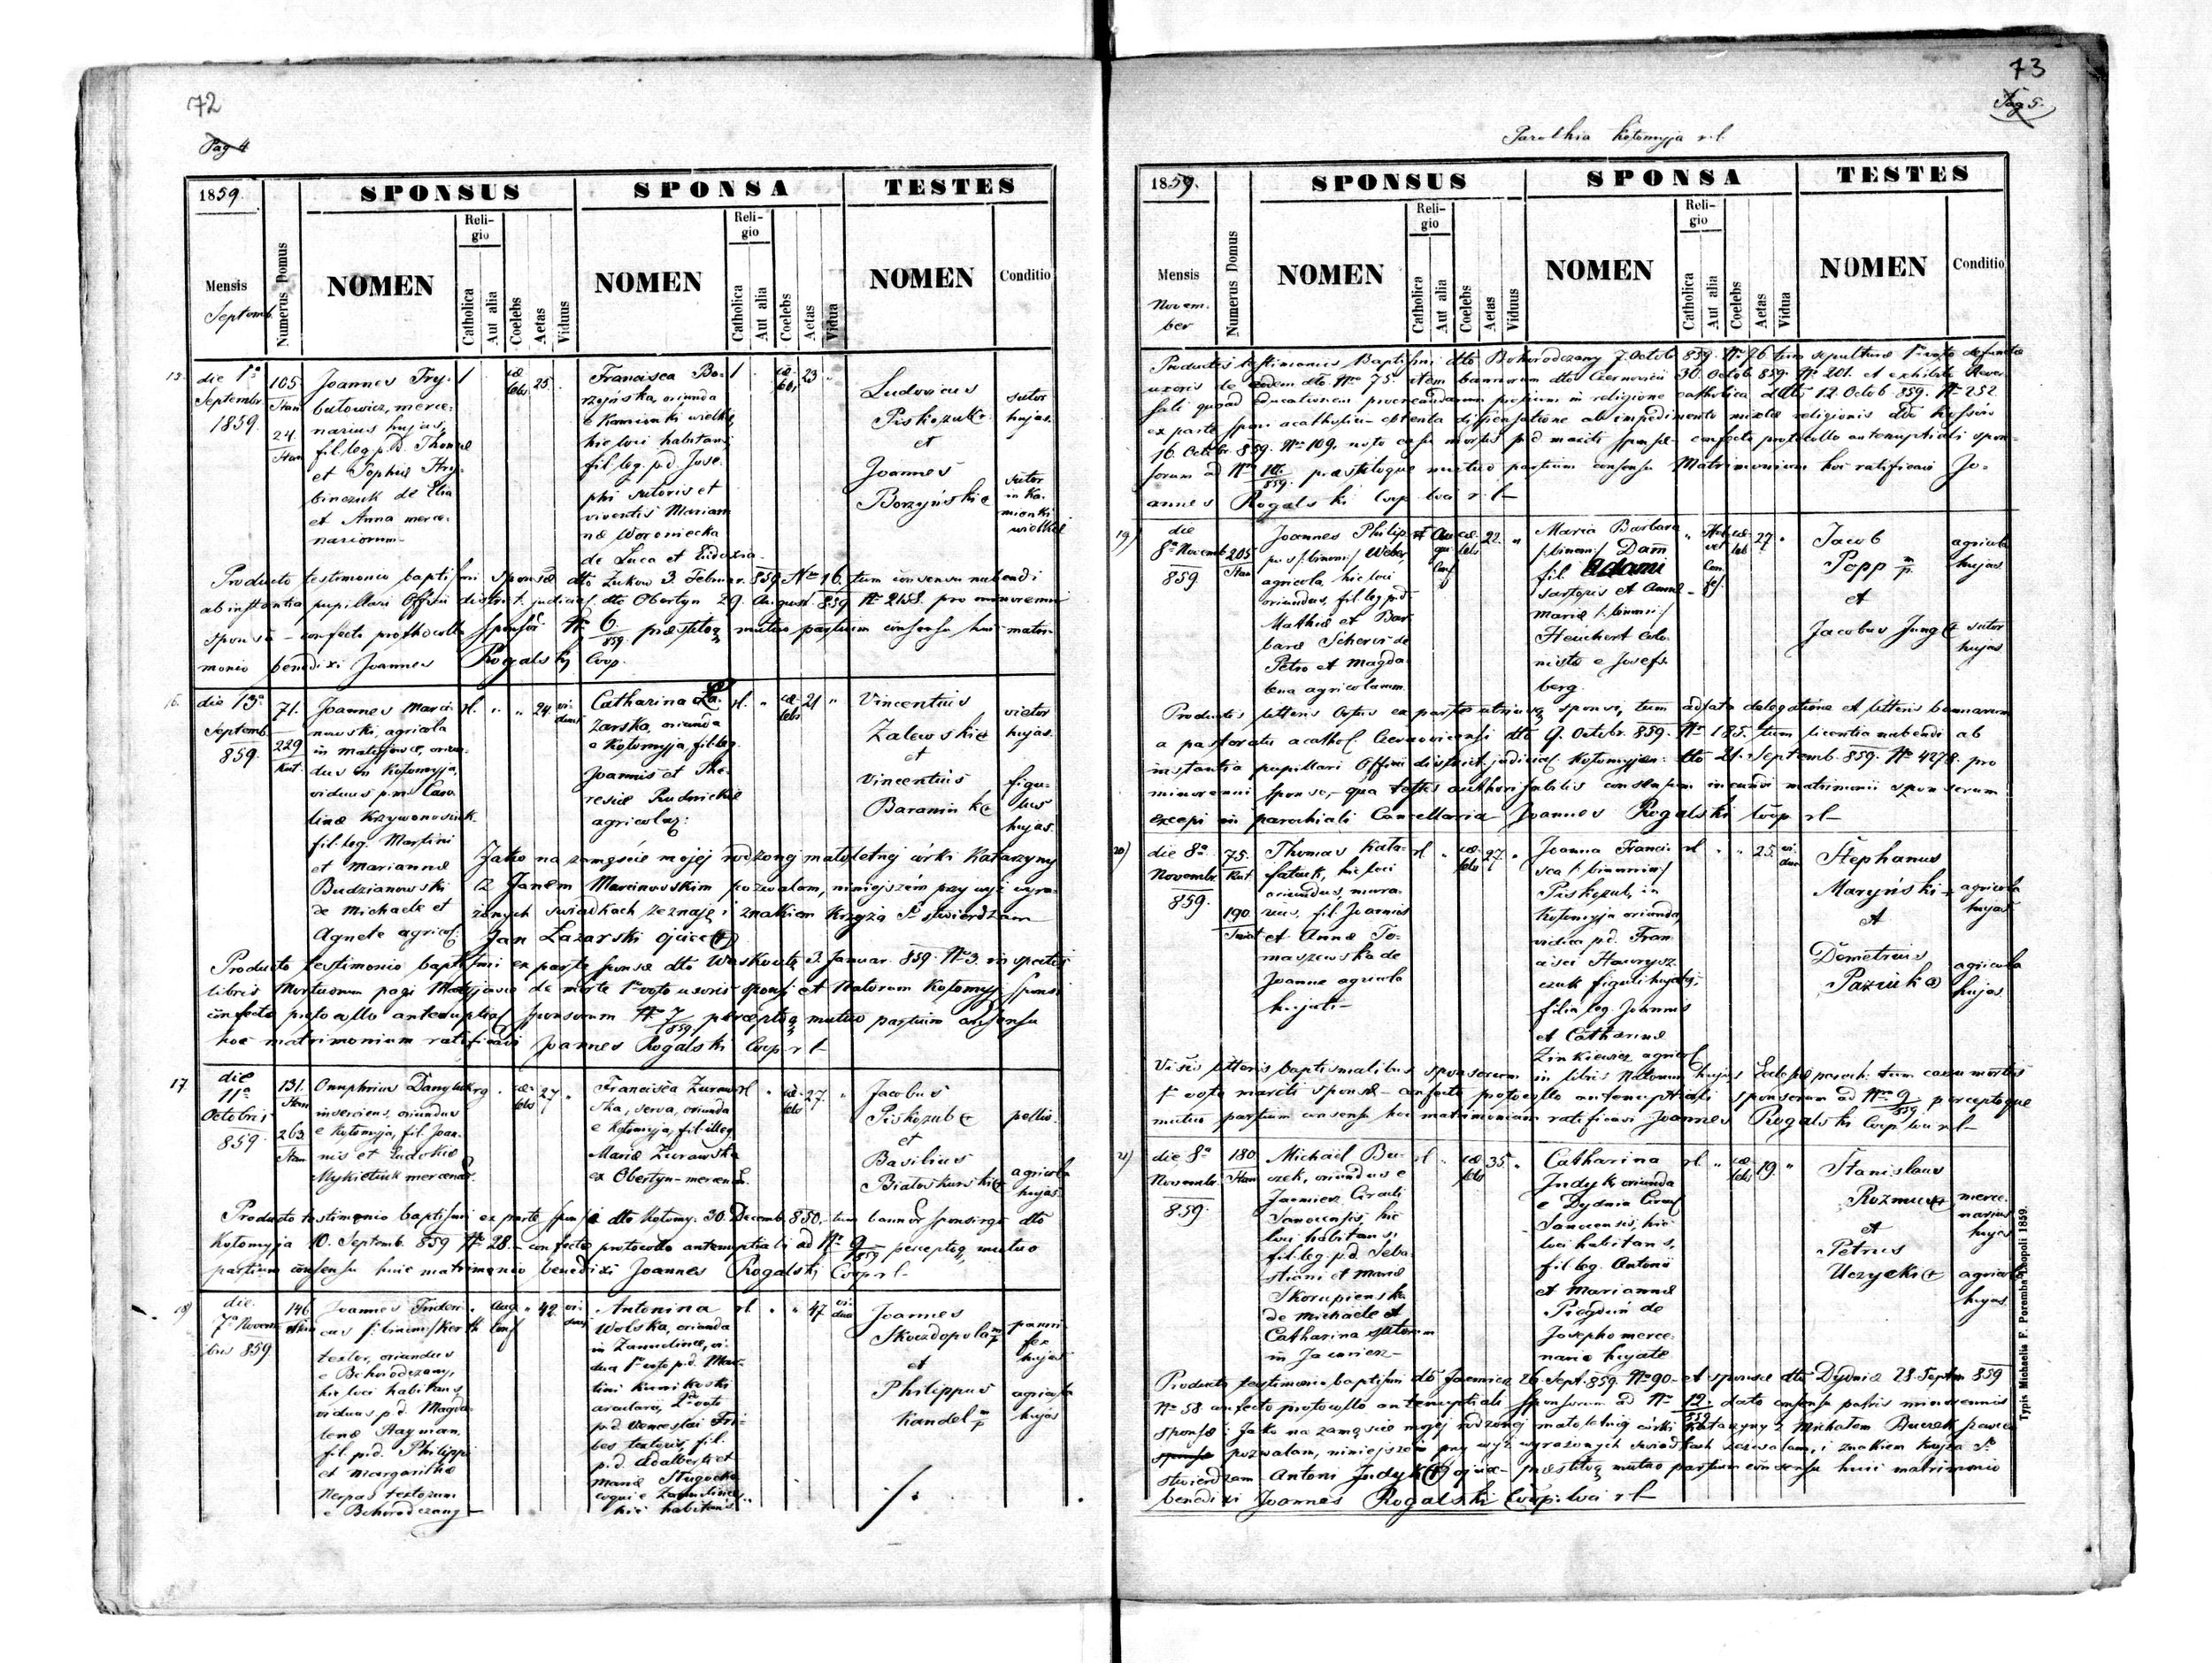 72
Pag 4
1859.
SPONSUS
SPONSA
TESTES
Mensis
Septemb.
Numerus Domus
NOMEN
Religio
Catholica
Aut alia
Coelebs
Aetas
Viduus
NOMEN
Religio
Catholica
Aut alia
Coelebs
Aetas
Vidua
NOMEN
Conditio
die 1a
Septembr.
1859.
105
Stan
24.
Stan
Joannes Try-
butowicz, merce-
narius hujas,
fil. leg. p.d. Thomae
et Sophiae Hry-
binczuk de Elia
et Anna merce-
nariorum
cae
lebs
25
Francisca Bo-
rzyńska, oriunda
e Kamionki wielkiej
hic loci habitans
fil. leg. p.d. Jose-
phi sutoris et
viventis Marian-
nae Woroniecka
de Luca et Eudoxia
23
Ludovicus
Piskozub
et
Joannes
Borzyński
sutor
hujas.
sutor
in Ka-
mionki
wielkiej
Producto testimonio baptismi sponsae dto Zukow 3. Februar. 859 Nro 16. tum consensu nubendi
ab instantia pupillari Officii district. judicial. dto Obertyn 29. August. 859 No 2158. pro minorenni
sponsa - confecto prothocollo sponsor. No 6/859. praestitoq mutuo partium consensu huic matri-
monio benedixi Joannes Rogalski Coop.
16.
die 13a
Septemb.
859.
71.
229
Kut.
Joannes Marci-
nowski, agricola
in Matyjowce, oriun-
dus in Kołomyja,
viduus p.m. Caro-
linae Krzywonosiuk
fil. leg. Martini
et Mariannae
Budzianowski
de Michaele et
Agnete agricol.
rl.
24
vi-
duus
Catharina Ła-
zarska, oriunda
e Kołomyja, fil. leg.
Joannis et The-
resiae Rudnickie
agricolar.
rl.
cae
lebs
21
Vincentius
Zalewski
et
Vincentius
Baranin
vietor
hujas.
figu-
lus
hujas.
Jako na zamęście mojej rodzonej małoletnej córki Katarzyny
z Janem Marcinowskim pozwalam, niniejszém przy wyż wyra-
żonych swiadkach zeznaję i znakiem krzyża S. stwierdzam
Jan Łazarski ojciec
Producto testimonio baptismi ex parte sponsae dto Waskoutz 3. Januar. 859. No 3. inspectis
libris Mortuorum pagi Matyjowce de morte 1o voto uxoris sponsi et Natorum Kołomyj sponsi
confecto protocollo antenuptial sponsorum No 7/859. perceptoq mutuo partium consensu
hoc matrimonium ratificavi Joannes Rogalski Coop. rl
17
die
11a
Octobris
859.
131.
Stan
263.
Stan
Onuphrius Danyluk
inserviens, oriundus
e Kołomyja, fil. Joan-
nis et Eudokiae
Mykietiuk mercenar.
rg
cae-
lebs
27
Francisca Żuraw-
ska, serva, oriunda
e Kołomyja, fil. illeg.
Mariae Żurawska
ex Obertyn - mercenar.
rl
cae-
lebs
27.
Jacobus
Piskozub
et
Basilius
Białoskurski
pellio.
agricola
hujas.
Producto testimonio baptismi ex parte sponsae dto Kołomy. 30. Decemb. 850. tum bannor. sponsi rg. dto
Kołomyja 10. Septemb. 859 No 28. - confecto protocollo antenuptiali ad No 9/859 perceptoq mutuo
partium consensu huic matrimonio benedixi Joannes Rogalski Coop. rl
18)
die.
7a Novem-
bris 859
146
Stan
Joannes Frideri-
cus /: binom:/ Korth
textor, oriundus
e Bohorodczany,
hic loci habitans
viduus p.d. Magda-
lenae Hayman.
fil. p.d. Philippi
et Margarithae
Nerpas textorum
e Bohorodczany
Aug
Conf
42.
vi-
duus
Antonina
Wolska, oriunda
in Zamulince, vi-
dua 1o voto p.d. Mar-
tini Kunikowski
arcularii, 2do voto
p.d. Venceslai Fri-
bes textoris, fil.
p.d. Adalberti et
Mariae Sługocka
coqui e Zamulince,
hic habitans
rl
47
vi-
dua
Joannes
Skwodopola
et
Philippus
Kandel
panni-
fex
hujas
agricola
hujas
73
Pag 5.
Parochia Kołomyja r.l.
1859.
SPONSUS
SPONSA
TESTES
Mensis
Novem-
ber
Numerus Domus
NOMEN
Religio
Catholica
Aut alia
Coelebs
Aetas
Viduus
NOMEN
Religio
Catholica
Aut alia
Coelebs
Aetas
Vidua
NOMEN
Conditio
Productis testimoniis Baptismi dto Bohorodczany 7. Octob 859. No 26 tum sepulturae 1o voto defunctae
uxoris de eodem dto. No 75. item bannorum dto Czernovicii 30. Octob. 859. No 201. et exhibitis Rever-
sali quoad educationem procreandarum prolium in religione catholica ddto 12. Octob. 859. No 252.
ex parte sponsi acatholici - obtenta dispensatione ab impedimento mixtae religionis dto
16. Octobr. 859. No 109. noto casu mortis p.d. mariti sponsae - confecto protocollo antenuptiali spon-
sorum ad Nrm 10/859. praestitoque mutuo partium consensu Matrimonium hoc ratificavi Jo-
annes Rogalski Coop loci rl
19)
die
8a Novemb
859
205
Stan
Joannes Philip-
pus /: binom:/ Weber,
agricola, hic loci
oriundus, fil. leg. p.d.
Mathiae et Bar-
barae Scherer de
Petro et Magda-
lena agricolarum.
Au
gu
Conf
cae-
lebs
22.
Maria Barbara
/: binom:/ Dam̄
fil. Adami
sartoris et Annae
Mariae /: binom:/
Heuchert colo-
nistae e Josefs-
berg.
Helvet
Con
fes.
cae
lebs
27
Jacob
Popp
et
Jacobus Jung
agricola
hujas
sutor
hujas
Productis litteris Ortus ex parte utriusq sponsi, tum adlata delegatione et litteris bannorum
a pastoratu acathol. Czernovicensi dto 9. Octobr. 859. No 185. tum licentia nubendi ab
instantia pupillari Officii district. judicial. Kołomyjen: dto 21. Septemb. 859. No 4278. pro
minorenni sponso, - qua testis authorisabilis consensum ineundi matrimonii sponsorum
excepi in parochiali Cancellaria - Joannes Rogalski Coop. rl
20)
die 8a.
Novembr.
859.
75.
Kut
190
Thomas Kała-
fatiuk, hic loci
oriundus, mura-
rius, fil. Joannis
et Annae To-
maszewska de
Joanne agricola
hujati
rl
cae
lebs
27.
Joanna Francis-
ca /: binomin:/
Piskozub, in
Kołomyja oriunda,
vidua p.d. Fran-
cisci Hawrysz-
czuk figuli hujatis,
filia leg. Joannis
et Catharinae
Zinkiewicz agricol.
rl
25.
vi-
dua
Stephanus
Maryński
et
Demetrius
Paziuk
agricola
hujas
agricola
hujas
Visis litteris baptismalibus sponsorum in libris Natorum hujas Ecclesiae paroch. tum casu mortis
1o voto mariti sponsae - confecto protocollo antenuptiali sponsorum ad Nrm 9/859. perceptoque
mutuo partium consensu hoc matrimonium ratificavi Joannes Rogalski Coop. loci rl
21)
die 8a
Novembr.
859.
180
Stan
Michael Bu-
czek, oriundus e
Jacmierz Circuli
Sanocensis, hic
loci habitans,
fil. leg. p.d. Seba-
stiani et Mariae
Skorupienska
de Michaele et
Catharina sutorum
in Jacmierz
rl
cae
lebs
35.
Catharina
Indyk, oriunda
e Dydnia Circul
Sanocensis, hic
loci habitans,
fil. leg. Antonii
et Mariannae
Piegduń de
Josepho merce-
nario hujate
rl.
cae
lebs
19
Stanislaus
Rozmus
et
Petrus
Uczycki
merce-
narius
hujas
agricola
hujas
Producto testimonio baptismi dto Jacmierz 26. Sept. 859. No 90 - et sponsae dto Dydnia 28. Septem 859
No 58. confecto protocollo antenuptiali sponsorum ad No 12/859. dato consensu patris minorennis
sponsae: Jako na zamęście mojej rodzonej małoletniej córki Katarzyny z Michałem Buczek
pozwalam, niniejszém przy wyż wyrażonych świadkach zezwalam, i znakiem krzyża S.
stwierdzam - Antoni Indyk ojciec - praestitoq mutuo partium consensu huic matrimonio
benedixi Joannes Rogalski Coop. loci rl
Typis Michaelis F. Poremba Leopoli 1859.